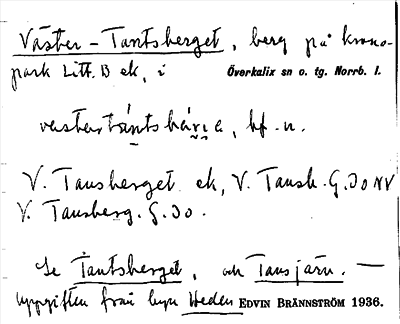 Väster-Tantsberget, berg på krono-
park Litt. B ek, i Överkalix sn o. tg. Norrb. l.
västertántsbáre, bf. n.
V. Tansberget ek, V. Tansb. G.30 NV
V. Tansberg. G.30.
Se Tantsberget, och Tansjärn. —
Uppgiften från byn Heden EDVIN BRÄNNSTRÖM 1936.